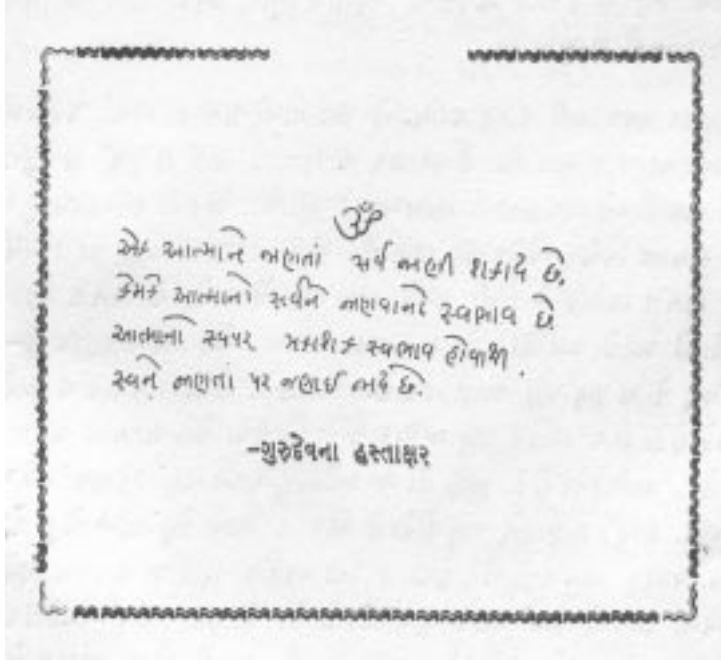 ૐ
એક આત્માને જાણતાં સર્વ જાણી શકાય છે.
કેમકે આત્માનો સર્વને જાણવાનો સ્વભાવ છે
આત્માનો સ્વપર પ્રકાશક સ્વભાવ હોવાથી.
સ્વને જાણતાં પર જણાઈ જાય છે.
-ગુરુદેવના હસ્તાક્ષર